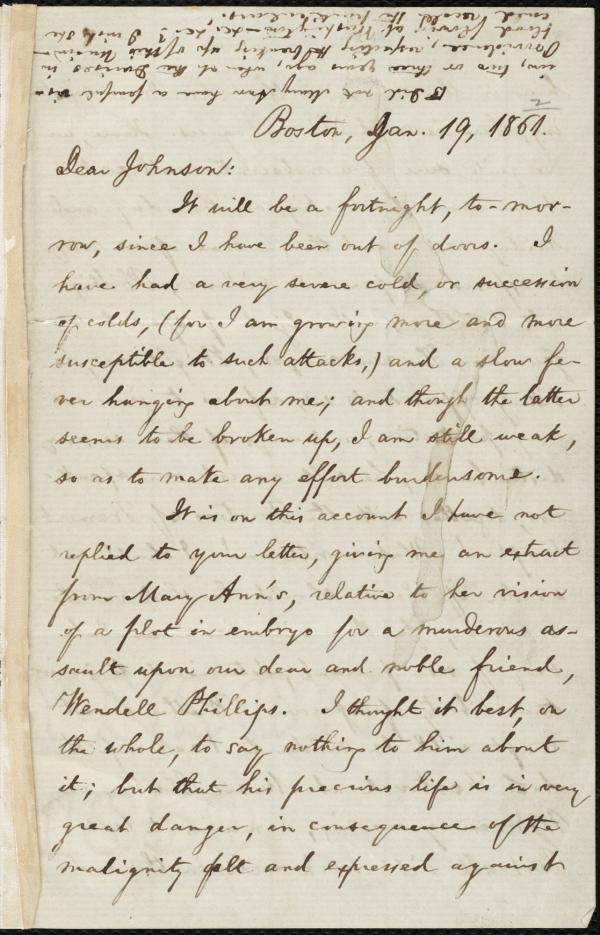 Did not Mary Ann have a painful vis-
ion, two or three years ago, when at the Davises in
Providence, respecting the breaking up of this Union—
blood flowing at Washington—&c. &c.? I wish she
could recall the particulars.
2
Boston, Jan. 19, 1861.
Dear Johnson:
It will be a fortnight, to-mor-
row, since I have been out of doors. I
have had a very severe cold, or succession
of colds, (for I am growing more and more
susceptible to such attacks,) and a slow fe-
ver hanging about me; and though the latter
seems to be broken up, I am still weak,
so as to make any effort burdensome.
It is on this account I have not
replied to your letter, giving me an extract
from Mary Ann's, relative to her vision
of a plot in embryo for a murderous as-
sault upon our dear and noble friend,
Wendell Phillips. I thought it best, on
the whole, to say nothing to him about
it; but that his precious life is in very
great danger, in consequence of the
malignity felt and expressed against